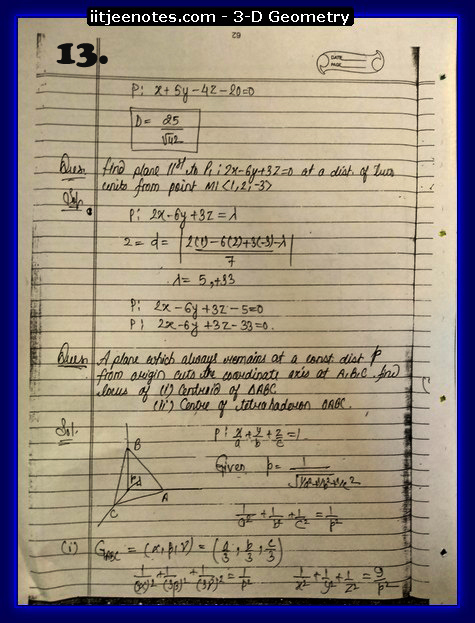 iitjeenotes.com - 3-D Geometry
62
13.
DATE
PAGE
P: x + 5y - 4z - 20 = 0
D = 25/√42
Ques. find plane 11st to P1 : 2x - 6y + 3z = 0 at a dist of two
units from point M1 <1, 2, -3>
Sol.
P: 2x - 6y + 3z = λ
2 = d = | 2(1) - 6(2) + 3(-3) - λ / 7 |
λ = 5, +33
P: 2x - 6y + 3z - 5 = 0
P: 2x - 6y + 3z - 33 = 0.
Ques. A plane which always remains at a const. dist p
from origin cuts the coordinate axis at A, B, C find
locus of (i) Centroid of OABC
(ii) Centre of tetrahaderon OABC.
Sol.
P: x/a + y/b + z/c = 1
Given p = 1/√1/a²+1/b²+1/c²
1/a² + 1/b² + 1/c² = 1/p²
B
P
A
C
(i) G_ABC = (α, β, γ) = (a/3, b/3, c/3)
1/(3α)² + 1/(3β)² + 1/(3γ)² = 1/p² 1/x² + 1/y² + 1/z² = 9/p²